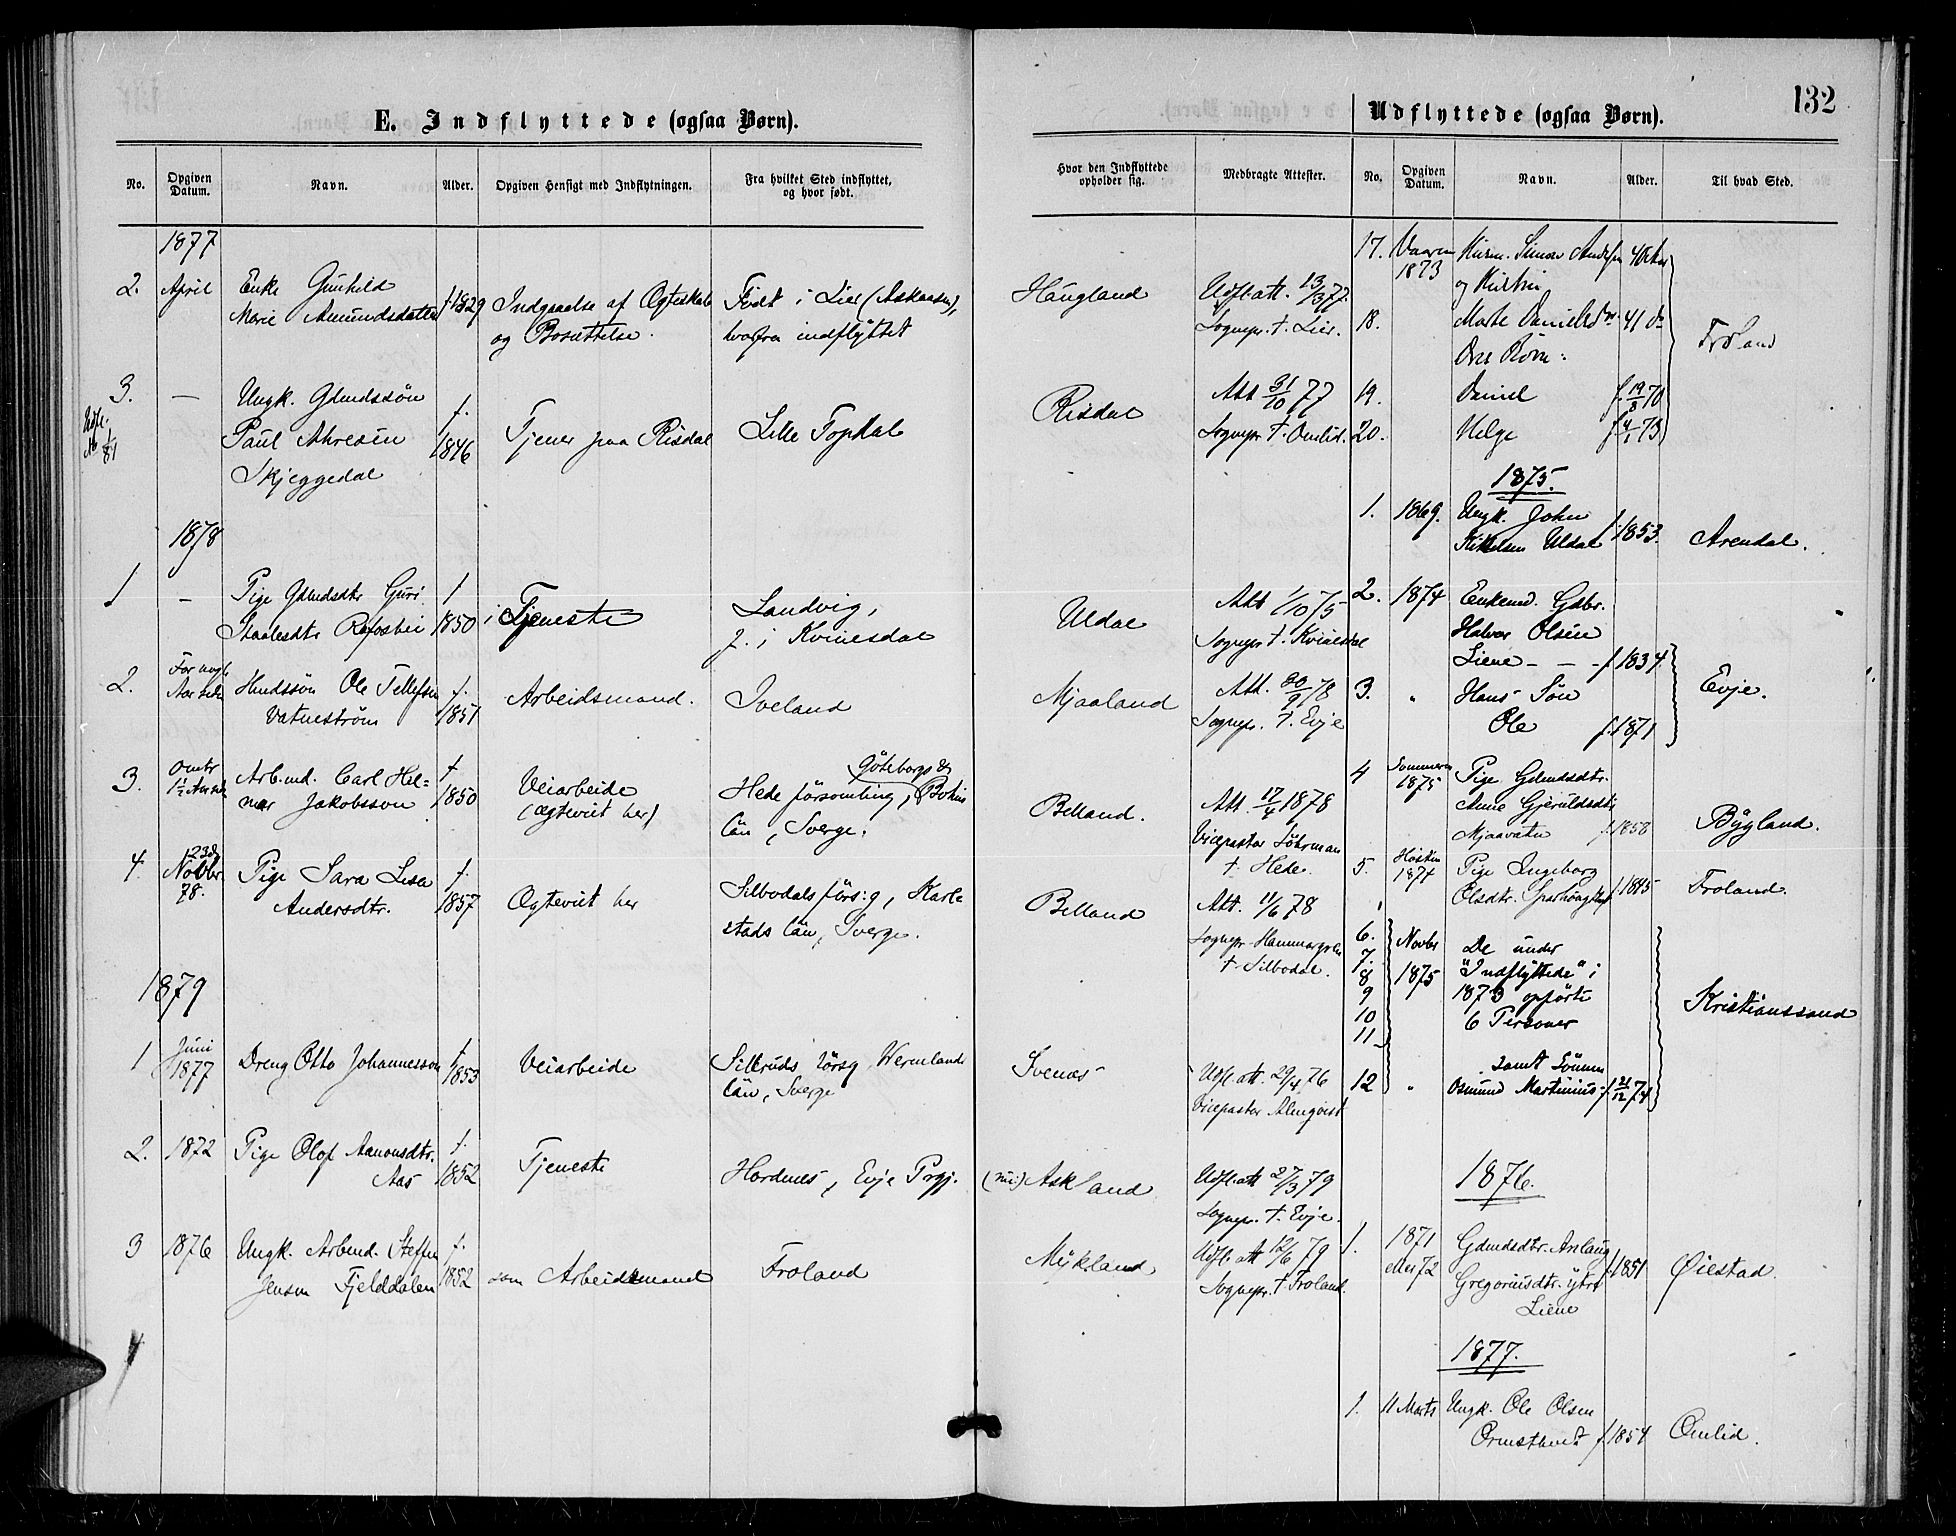 E. Indflyttede (ogsaa Børn).
No.
Opgiven Datum.
Navn.
Alder.
Opgiven Hensigt med Indflytningen.
Fra hvilket Sted indflyttet, og hvor født.
Hvor den Indflyttede opholder sig.
Medbragte Attester.
1877
2. April Enke Gunhild f. 1829 Indgaaelse af Ægteskab Født i Lier (Askaasen), Haugland Udfl. att. 13/3 77.
Marie Amundsdatter og Bosættelse. hvorfra indflyttet Sognepr. t. Lier.
3. — Ungk. Gdmdssøn f. Att 31/10 77
Udfl. Paul Akresen 1846 Tjener paa Risdal Lille Topdal Risdal Sognepr. t. Omlid.
Skjeggedal
1878
1 — Pige Gdmdsdtr. Guri f. Landvig, Att 1/10 75
Staalesdtr. Rafosbei 1850 i Tjeneste f. i Kvinesdal Uldal Sognepr. t. Kvinesdal
2. For nogle Husmdssøn Ole Tellefsen f. Arbeidsmand. Iveland Mjaaland Att. 30/9 78
Aar siden Vatnestrøm 1851 Sognepr. t. Evje
3. Omtr. Arb.md. Carl Hel= f. Veiarbeide Göteborgs &
1½ Aar sid. mer Jakobsson 1850 (Ægteviet her) Hede församling, Bohus Belland. Att. 17/4 1878
län, Sverge. Vicepastor Söhrman
t. Hede.
4. 23de Pige Sara Lisa f. Silbodals förs:g, Karl- Att. 11/6 78
Novbr. 78. Andersdtr. 1857 Ægteviet her stads län, Sverge. Belland Sognepr. Hammargren
t. Silbodal.
1879
1 Juni Dreng Otto Johannesson f. Veiarbeide Silleruds förs:g Wermlands Svenæs Udfl. att. 29/4 76
1877 1853 län, Sverge Vicepastor Almqvist
2. 1872 Pige Olof Aanonsdtr. f. Tjeneste Hordnes, Evje Prgj. (nu) Askland Udfl. att 27/3 79
Aas 1852 Sognepr. t. Evje.
3 1876 Ungk. Arbmd. Steffen f. som Arbeidsmand Froland Mykland Udfl. att 12/6 79
Jensen Fjelddalen 1852 Sognepr. t. Froland.
4
132
Udflyttede (ogsaa Børn).
No.
Opgiven Datum.
Navn.
Alder.
Til hvad Sted.
17. Vaaren Husm. Simon Andersen 40 Aar
1873 og Hustru
18. Marte Danielsdtr. 41 do Froland
Dres Børn:
19. Daniel f. 19/8 70
20. Helge f. 4/1 73
1875.
1. 1869. Ungk. John f. 1853. Arendal.
Kittelsen Uldal
2. 1874 Enkemd. Gdbr.
Halvor Olsen
Liene - - - f. 1834.
3. " Hans Søn Evje.
Ole f. 1871
4 Sommeren Pige Gdmdsdtr.
1875 Anne Gjeruldsdtr.
Mjaavatn f. 1858 Bygland.
5. Høsten Pige Ingeborg
1874 Olsdtr. f. 1845 Froland.
6. Novbr. De under
7. 1875 "Indflyttede" i
8 1873 opførte
9 6 Personer Kristianssand
10
11
samt Sønnen
12 " Osmund Martinius f. 21/12 74
1876.
1. 1871 Gdmdsdtr. Anlaug f. 1851 Øiestad.
eller 72 Gregoriusdtr. ytre
Liene
1877.
1. 11 Marts Ungk. Ole Olsen
Ormsthveit f. 1854 Omlid.